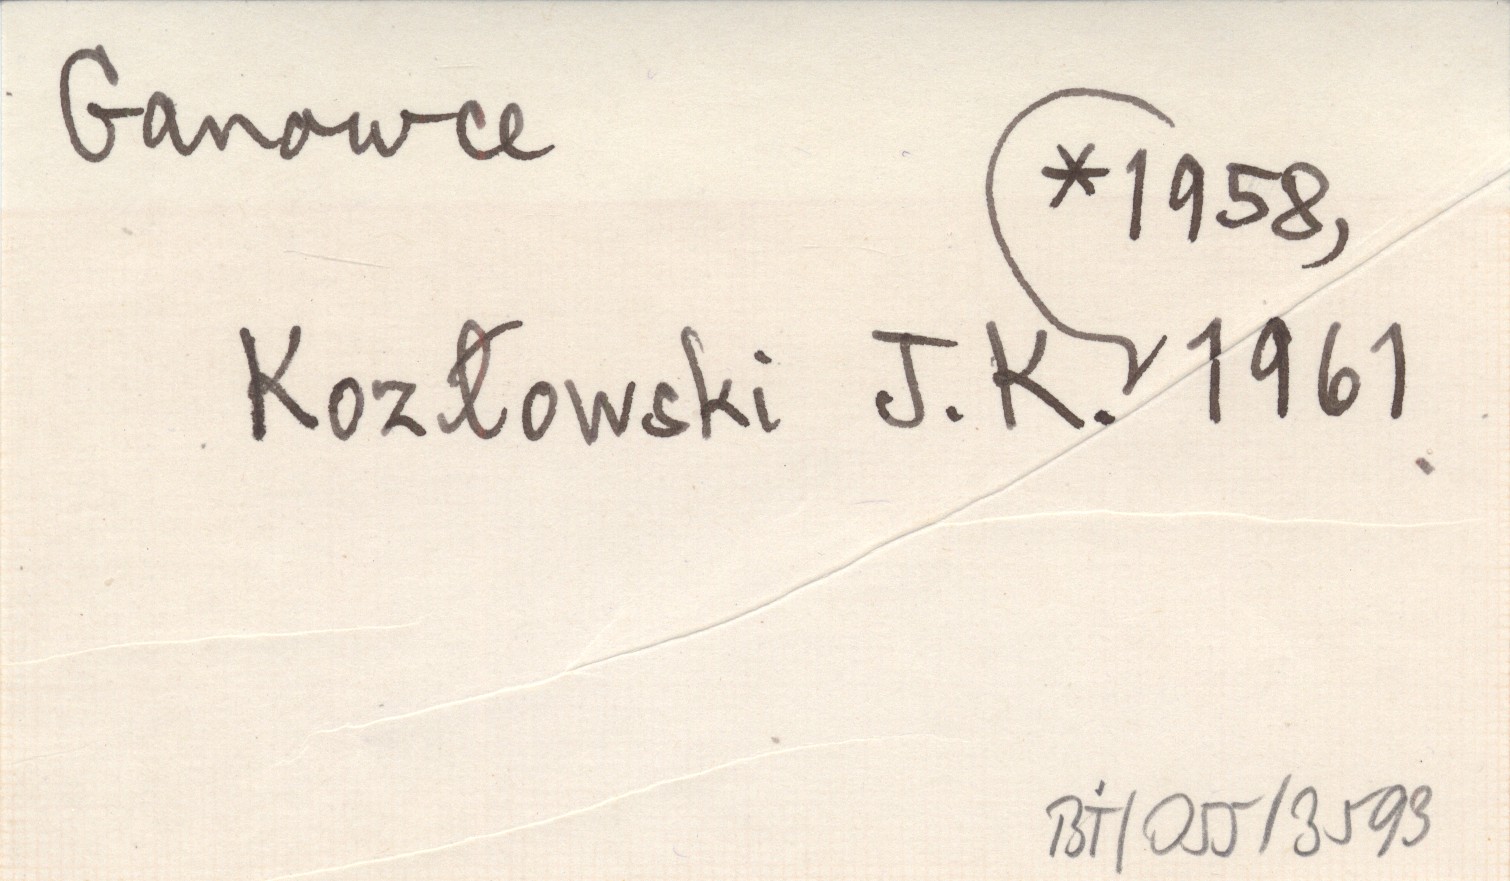 Ganowce
*1958,
Kozłowski J.K. 1961
BT/055/3593